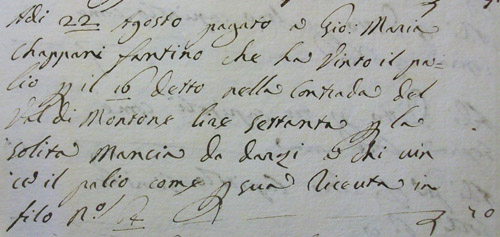 Adi 22 Agosto pagato a Gio: Maria
Chiappari fantino che ha Vinto il pa=
lio p il 16 detto nella Contrada del
Val di Montone lire settanta p la
solita Mancia da darsi a chi vin
ce il palio come p sua riceuta in
filo N.o 14 70